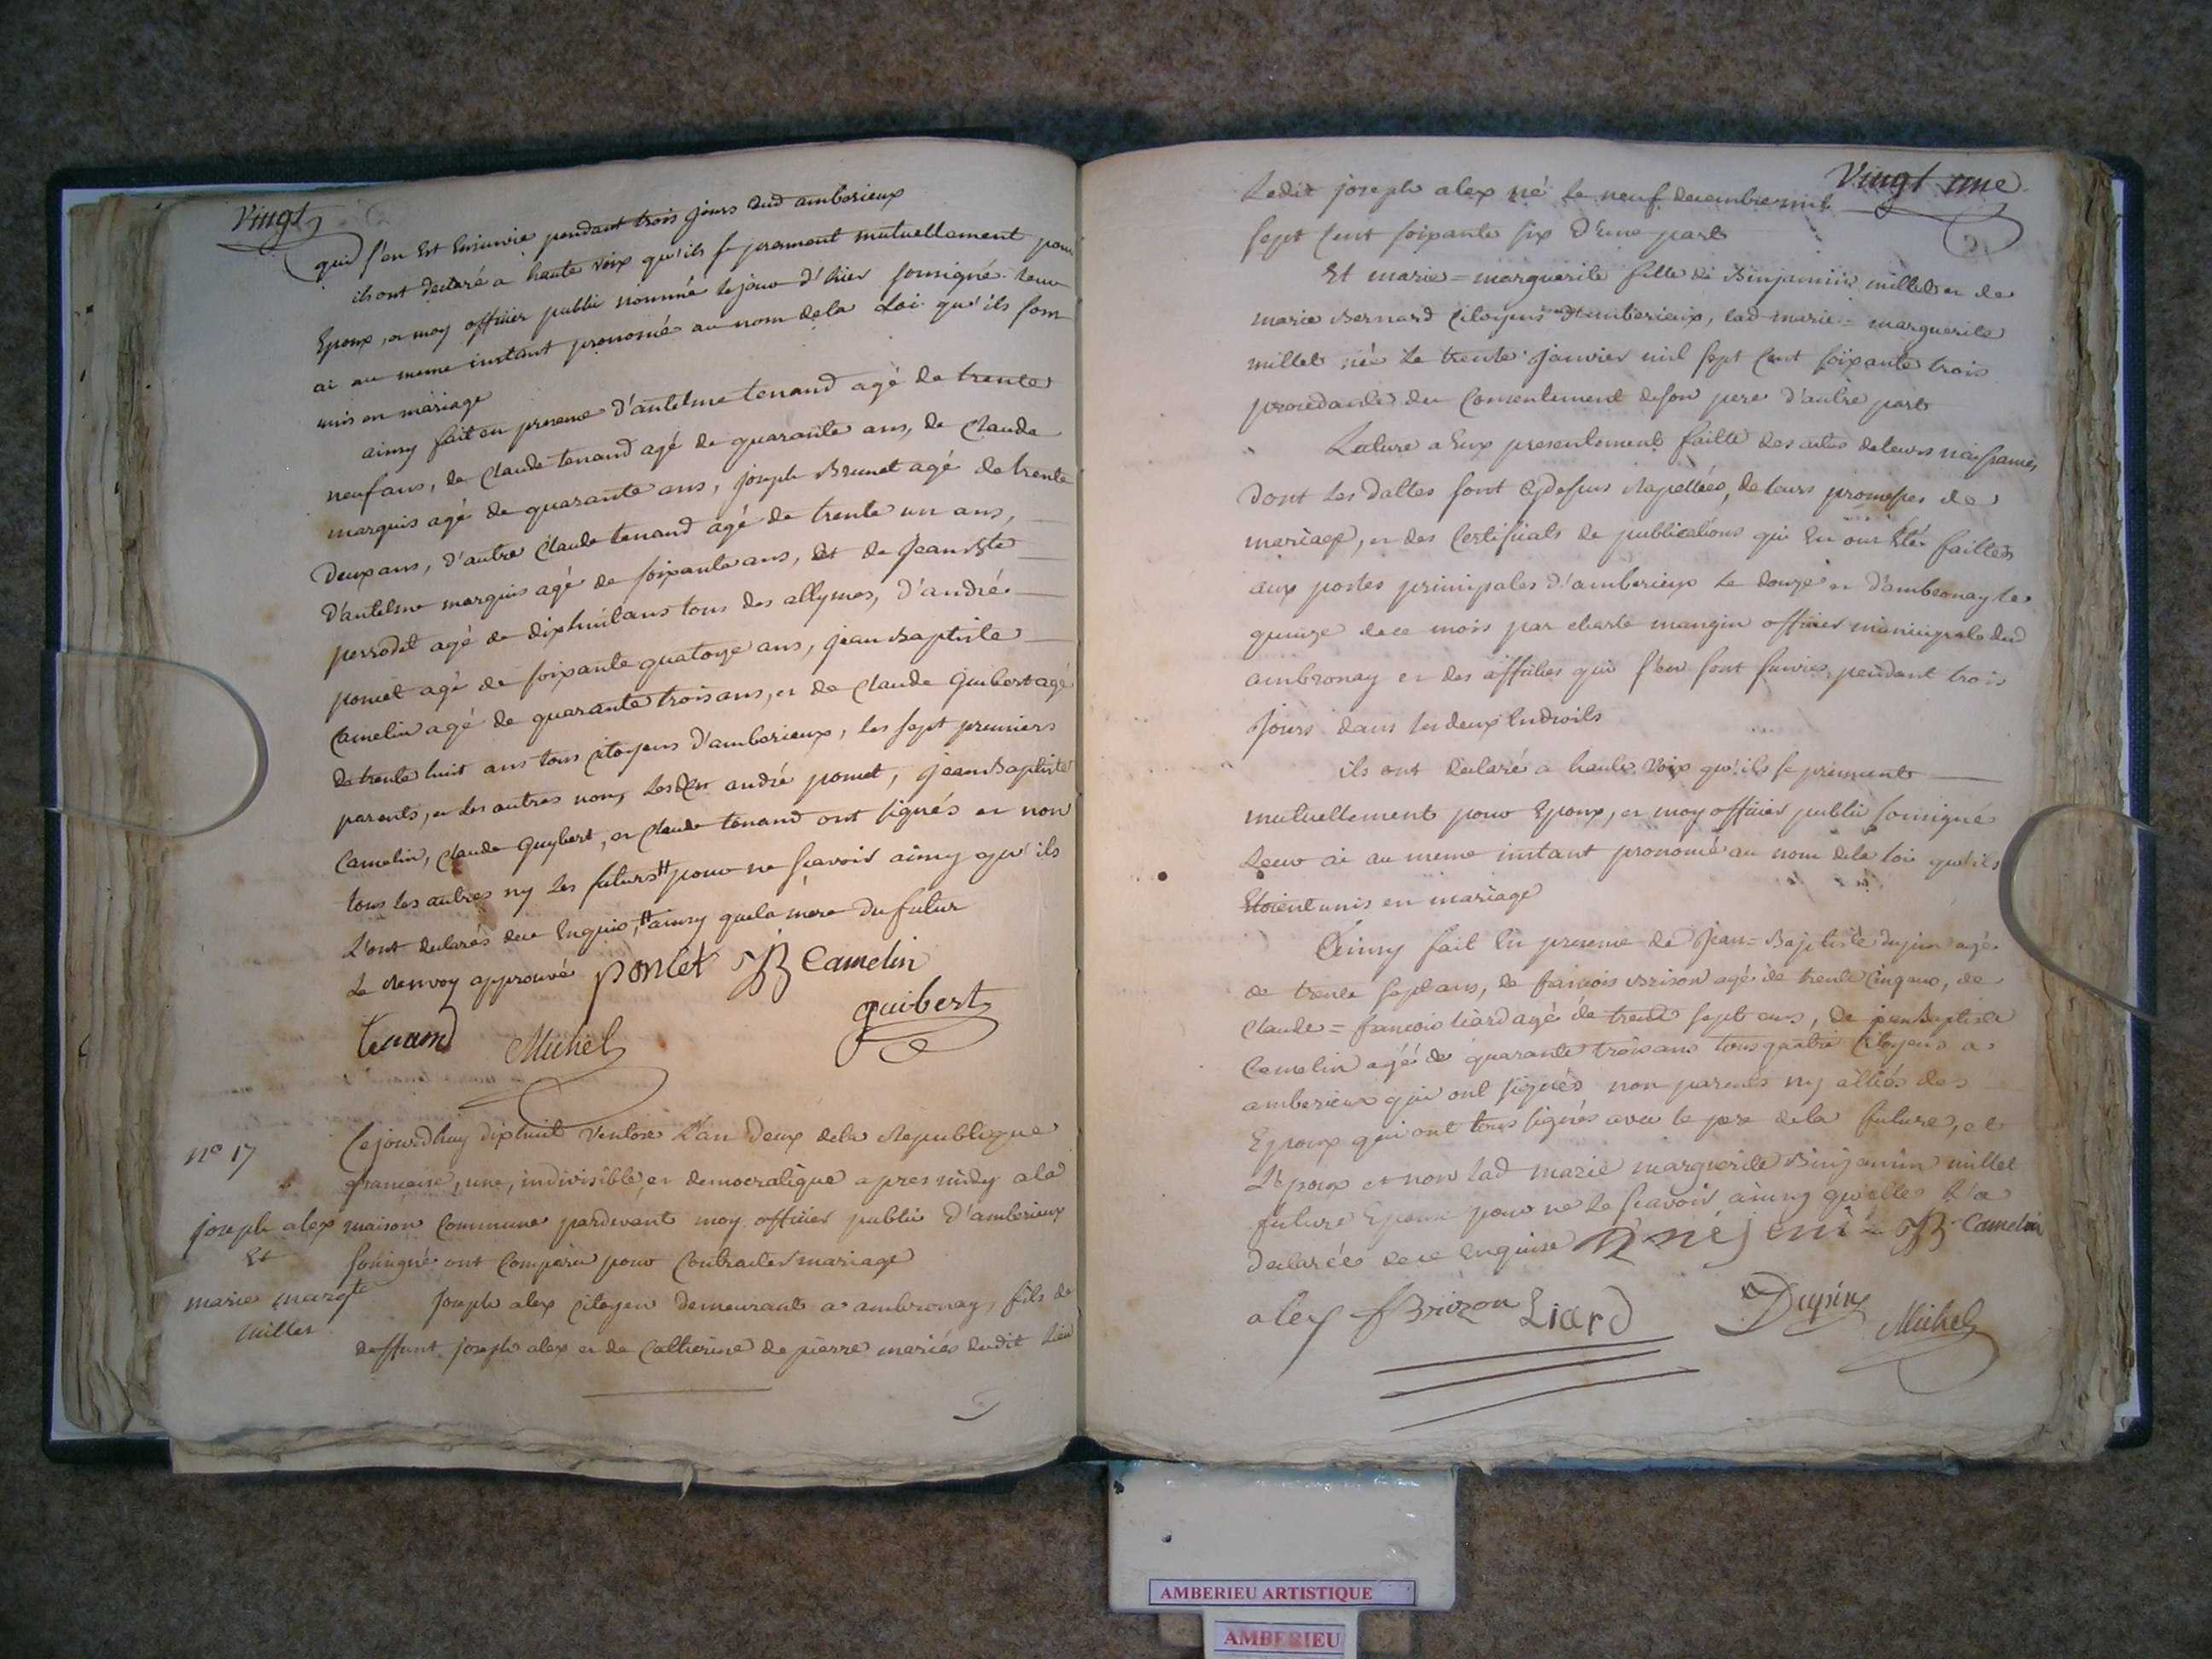 Vingt
qui s'en est ensuivie pendant trois jours dud amberieux
ils ont declaré a haute voix qu'ils se prennent mutuellement pour
Epoux, et moy officier public nommé le jour d'hier soussigné leur
ai au meme instant prononcé au nom de la Loi qu'ils sont
unis en mariage
ainsy fait en presence d'antelme tenand agé de trente
neuf ans, de Claude tenand agé de quarante ans, de Claude
marquis agé de quarante ans, joseph Brunet agé de trente
Deux ans, d'autre Claude tenand agé de trente un ans,
D'antelme marquis agé de soixante ans, et de Jean Bte
perrodet agé de dixhuit ans tous des allymes, d'andré
poncet agé de soixante quatorze ans, jean Baptiste
Camelin agé de quarante trois ans, et de Claude Guibert agé
de trente huit ans tous citoyens d'amberieux, les sept premiers
parents, et les autres non, andré poncet, jean Baptiste
Camelin, Claude Guybert, et Claude tenand ont signés et non
tous les autres ny les futurs # pour ne sçavoir ainsy qu'ils
L'ont declarés de ce Enquis, # ainsy que la mere du futur
Le Renvoy approuvé ponset JB Camelin
tenand Michel guibert
no 17
Cejourdhuy dixhuit Ventose L'an Deux de la Republique
francaise, une, indivisible et democratique apres midy a la
joseph alex maison Commune pardevant moy officier public d'amberieux
Et soussigné ont Comparu pour Contracter mariage
marie margte Joseph alex Citoyen demeurant a ambronay, fils de
millet deffunt joseph alex et de Catherine de pierre mariés dudit Lieu
Vingt une
Ledit joseph alex né le neuf decembre mil
sept Cent soixante six d'une part
Et marie = marguerite fille de Binjamin millet et de
marie Bernard Citoyens d'amberieux, lad marie = marguerite
millet née le trente Janvier mil sept Cent soixante trois
procedante du Consentement de son pere d'autre part
Lecture a Eux presentement faitte des actes de leurs naissances
Dont les dattes sont cydessus Rapellées, de leurs promesses de
mariage, et des Certificats de publications qui en ont Eté faittes
aux portes principales d'amberieux le douze et d'ambronay le
quinze de ce mois par charle mangin officier municipale dud
ambronay et des affiches qui s'en sont suivies pendant trois
Jours dans les deux Endroits
ils ont declaré a haute voix qu'ils se prennent
mutuellement pour Epoux, et moy officier public soussigné
Leur ai au meme instant prononcé au nom de la loi qu'ils
Etoient unis en mariage
Ainsy fait En presence de Jean = Baptiste dupin agé
de trente sept ans, de francois Brison agé de trente Cinq ans, de
Claude = francois Liard agé de trente sept ans, de jean Baptiste
Camelin agé de quarante trois ans tous quatre Citoyens a
amberieux qui ont signés non parents ny alliés des
Epoux qui ont tous signés avec le pere de la future, et
L'Epoux et non lad marie marguerite Binjamin millet
future Epouse pour ne le sçavoir ainsy qu'elle l'a
declarée de ce Enquise JB Camelin
alex fBrizon Liard Dupin Michel
AMBERIEU ARTISTIQUE
AMBERIEU